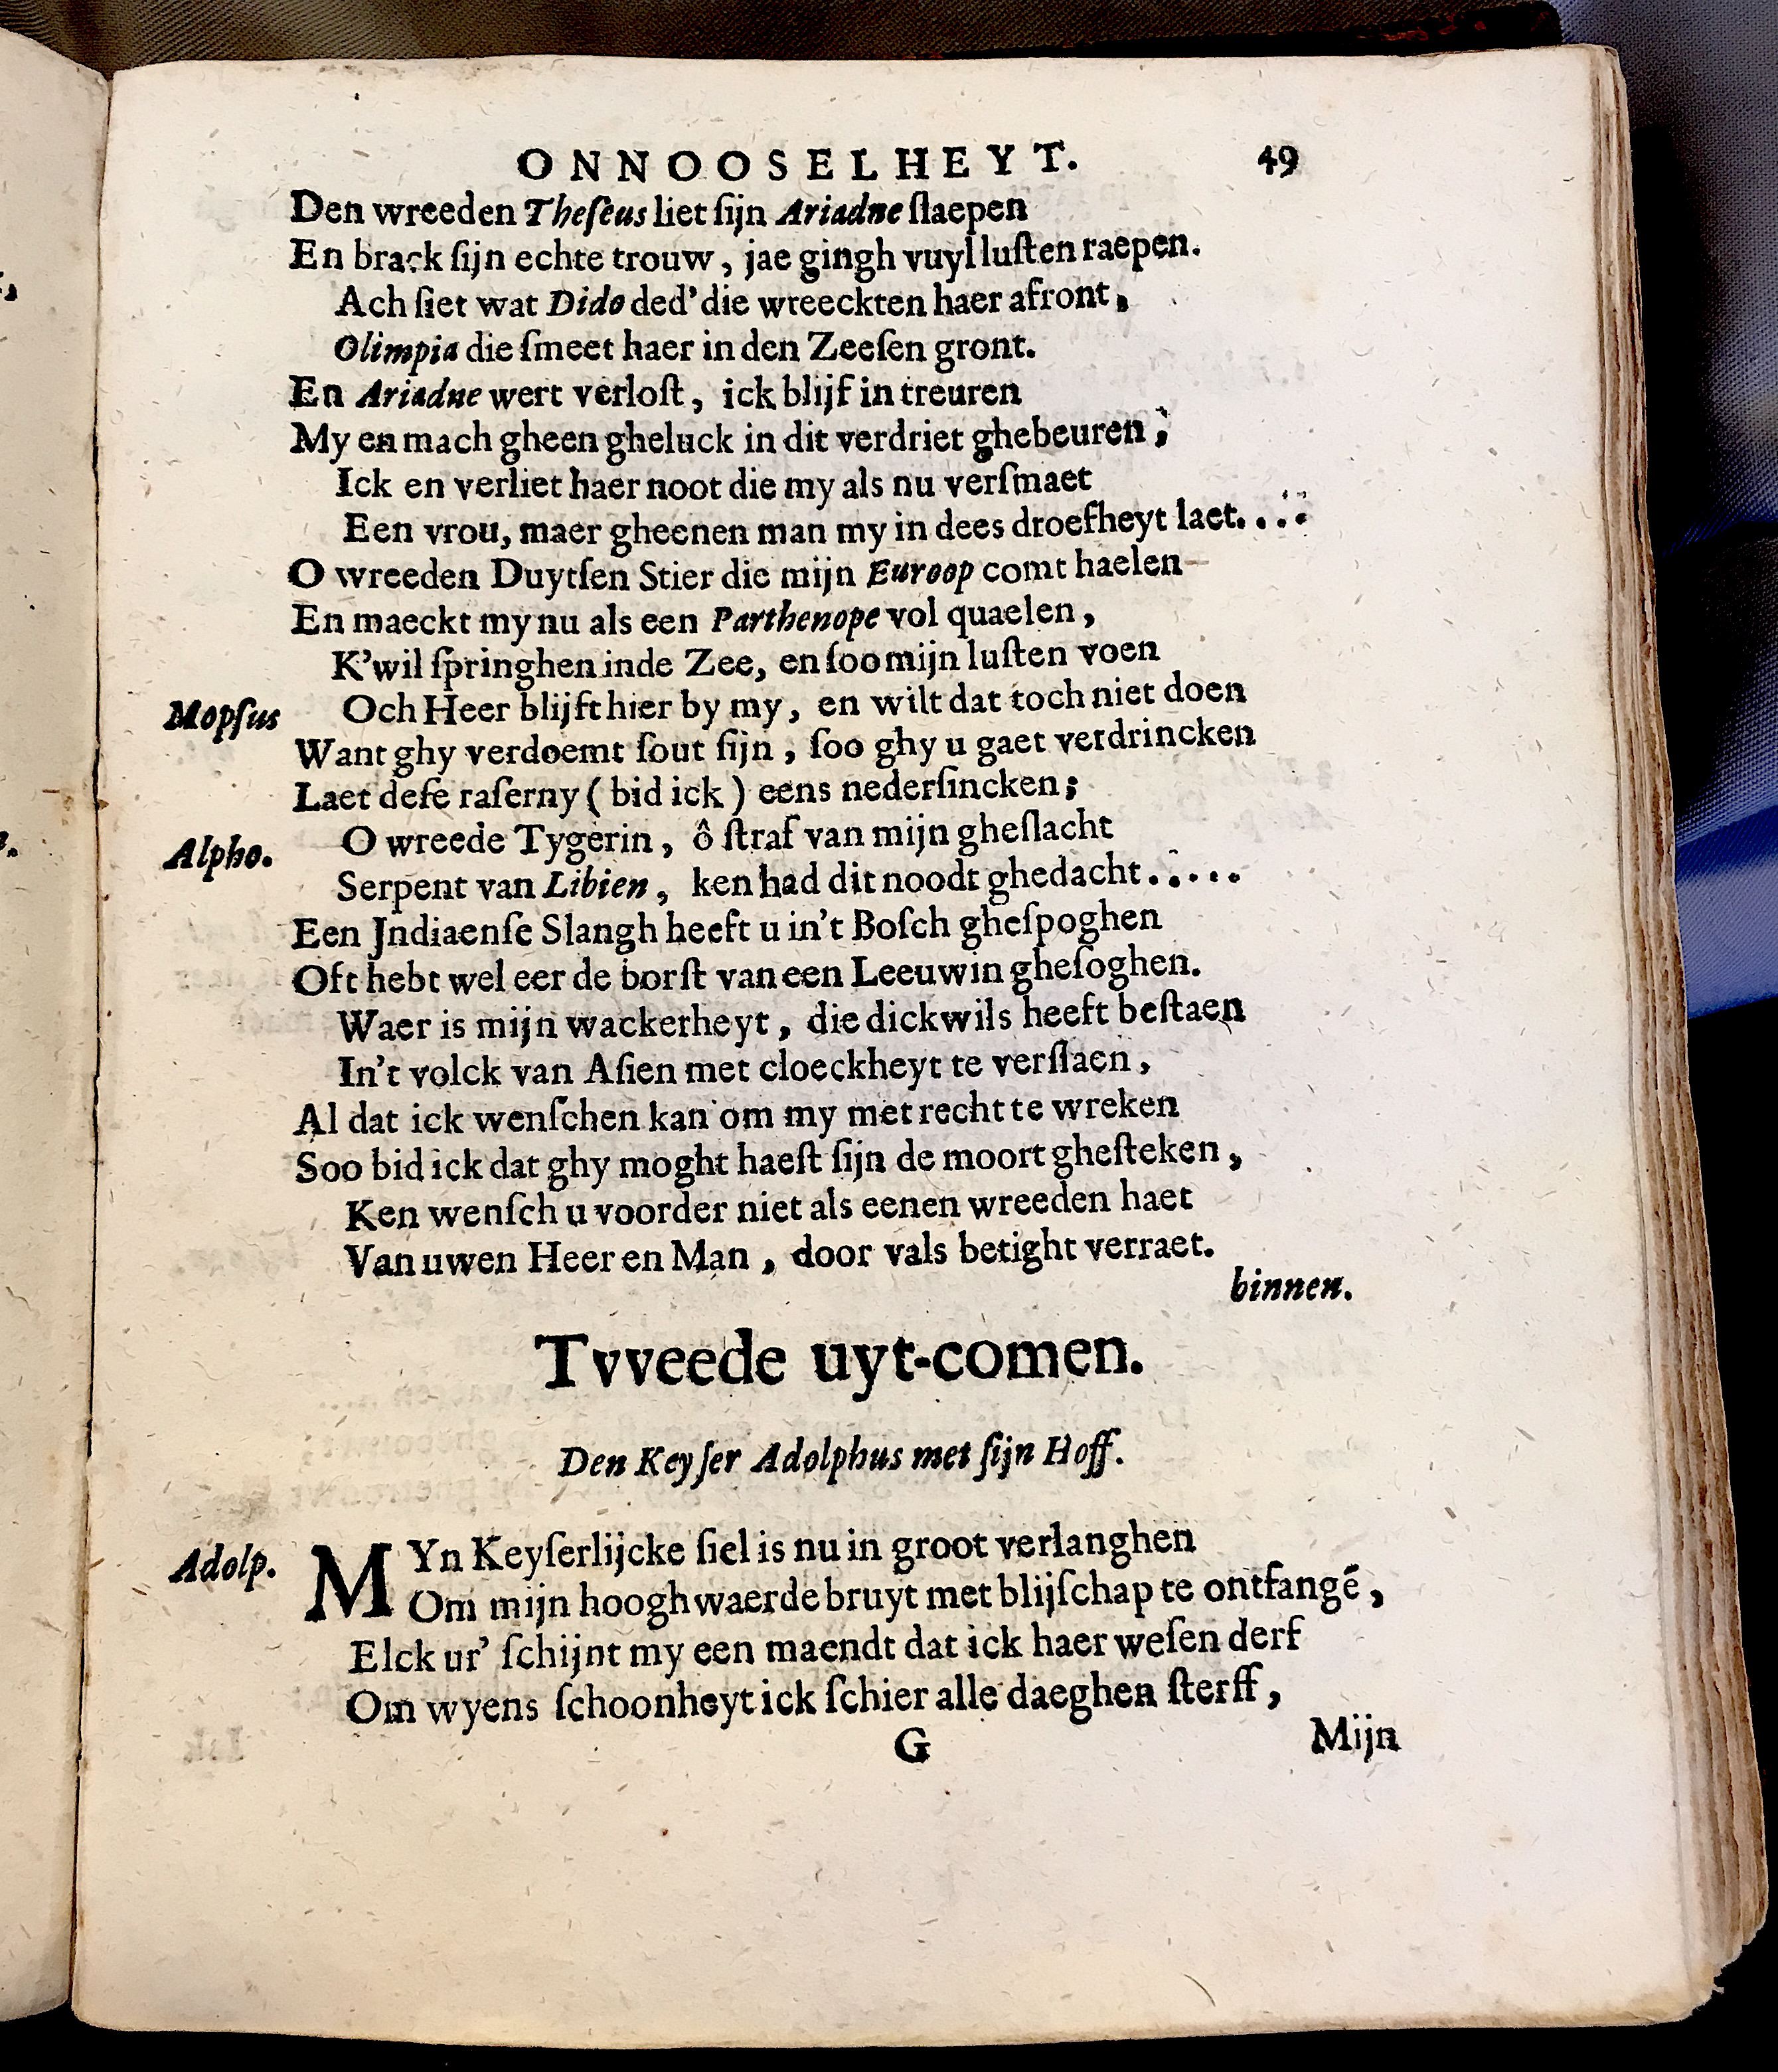 ONNOOSELHEYT. 49
Den wreeden Theſeus liet ſijn Ariadne ſlaepen
En brack ſijn echte trouw, jae gingh vuyl luſten raepen.
Ach ſiet wat Dido ded' die wreeckten haer afront,
Olimpia die ſmeet haer in den Zeeſen gront.
En Ariadne wert verloſt, ick blijf in treuren
My en mach gheen gheluck in dit verdriet ghebeuren;
Ick en verliet haer noot die my als nu verſmaet
Een vrou, maer gheenen man my in dees droefheyt laet....
O wreeden Duytſen Stier die mijn Euroop comt haelen
En maeckt my nu als een Parthenope vol quaelen,
K'wil ſpringhen inde Zee, en ſoo mijn luſten voen
Mopſus Och Heer blijft hier by my, en wilt dat toch niet doen
Want ghy verdoemt ſout ſijn, ſoo ghy u gaet verdrincken
Laet deſe raſerny (bid ick) eens nederſincken;
Alpho. O wreede Tygerin, ô ſtraf van mijn gheſlacht
Serpent van Libien, ken had dit noodt ghedacht.....
Een Jndiaenſe Slangh heeft u in't Boſch gheſpoghen
Oft hebt wel eer de borſt van een Leeuwin gheſoghen.
Waer is mijn wackerheyt, die dickwils heeft beſtaen
In't volck van Aſien met cloeckheyt te verſlaen,
Al dat ick wenſchen kan om my met recht te wreken
Soo bid ick dat ghy moght haeſt ſijn de moort gheſteken,
Ken wenſch u voorder niet als eenen wreeden haet
Van uwen Heer en Man, door vals betight verraet.
binnen.
Tvveede uyt-comen.
Den Keyſer Adolphus met ſijn Hoff.
Adolp. MYn Keyſerlijcke ſiel is nu in groot verlanghen
Om mijn hoogh waerde bruyt met blijſchap te ontfangē,
Elck ur' ſchijnt my een maendt dat ick haer weſen derf
Om wyens ſchoonheyt ick ſchier alle daeghen ſterff,
G Mijn